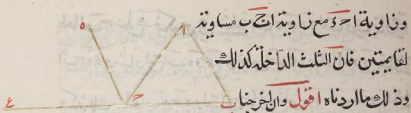 وزاوية ا ح ء مع زاوية ا ح ب مساوية
لقايمتين فان الثلث الداخلة كذلك
وذلك ما اردناه اقول وان اخرجنا ب
ا
ه
ح
ع